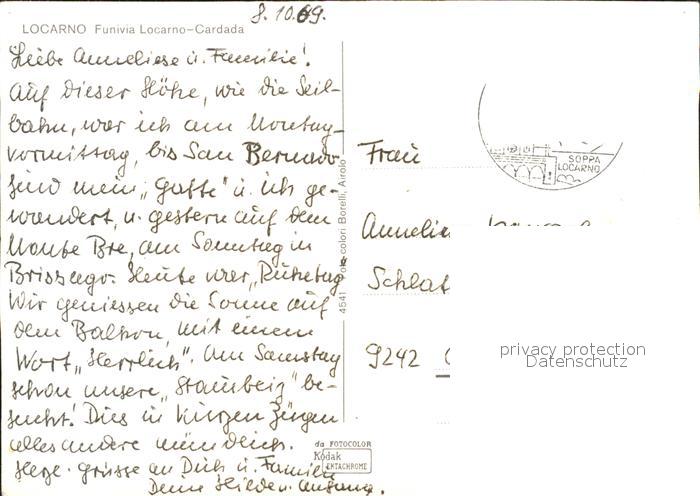 8.10.69.
LOCARNO Funivia Locarno-Cardada
Liebe Anneliese u. Familie!
Auf dieser Höhe, wie die Seil-
bahn, war ich am Montag-
vormittag, bis San Bernardo
sind mein "Gatte" u. ich ge-
wandert, u. gestern auf dem
Monte Bre, am Sonntag in
Brissago. Heute war "Ruhetag"
Wir geniessen die Sonne auf
dem Balkon, mit einem
Wort "Herrlich". Am Samstag
schon unsere besucht! Dies in kurzen Zügen
alles andere mündlich.
Herz. grüsse an Dich u. Familie
Deine Hilde u.
4541 Fotocolori Borelli, Airolo
da FOTOCOLOR
Kodak
EKTACHROME
SOPRA
LOCARNO
Frau
Schlat
9242
privacy protection
Datenschutz